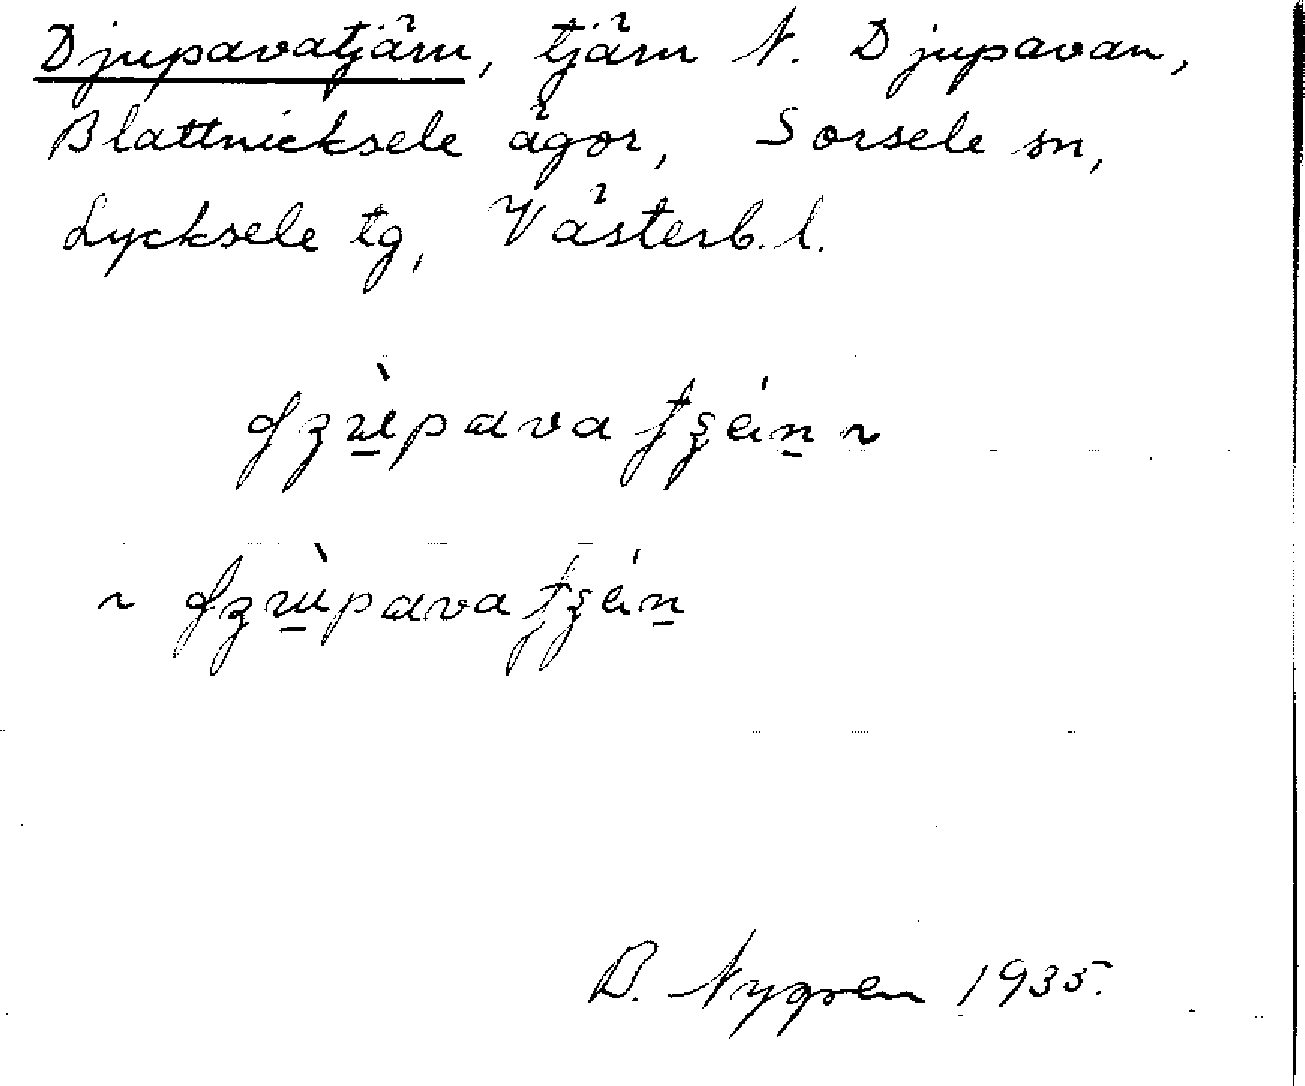 Djupavatjärn, tjärn N. Djupavan,
Blattnicksele ägor, Sorsele sn,
Lycksele tg, Västerb. l.
B. Nygren 1935.